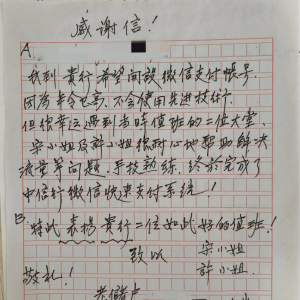 感谢信！
A.
我到 貴行 希望開啟微信支付帳号.
因為年令已高, 不会使用先进技術.
但很幸运遇到当時值班的二位大堂.
宋小姐及許小姐很耐心地帮助解决
流量等问题. 手技熟練. 终於完成了
中信行微信快速支付系统！
B: 特此 表揚 貴行二位如此好的值班！
致以 宋小姐
敬礼！ 許小姐.
老儲户